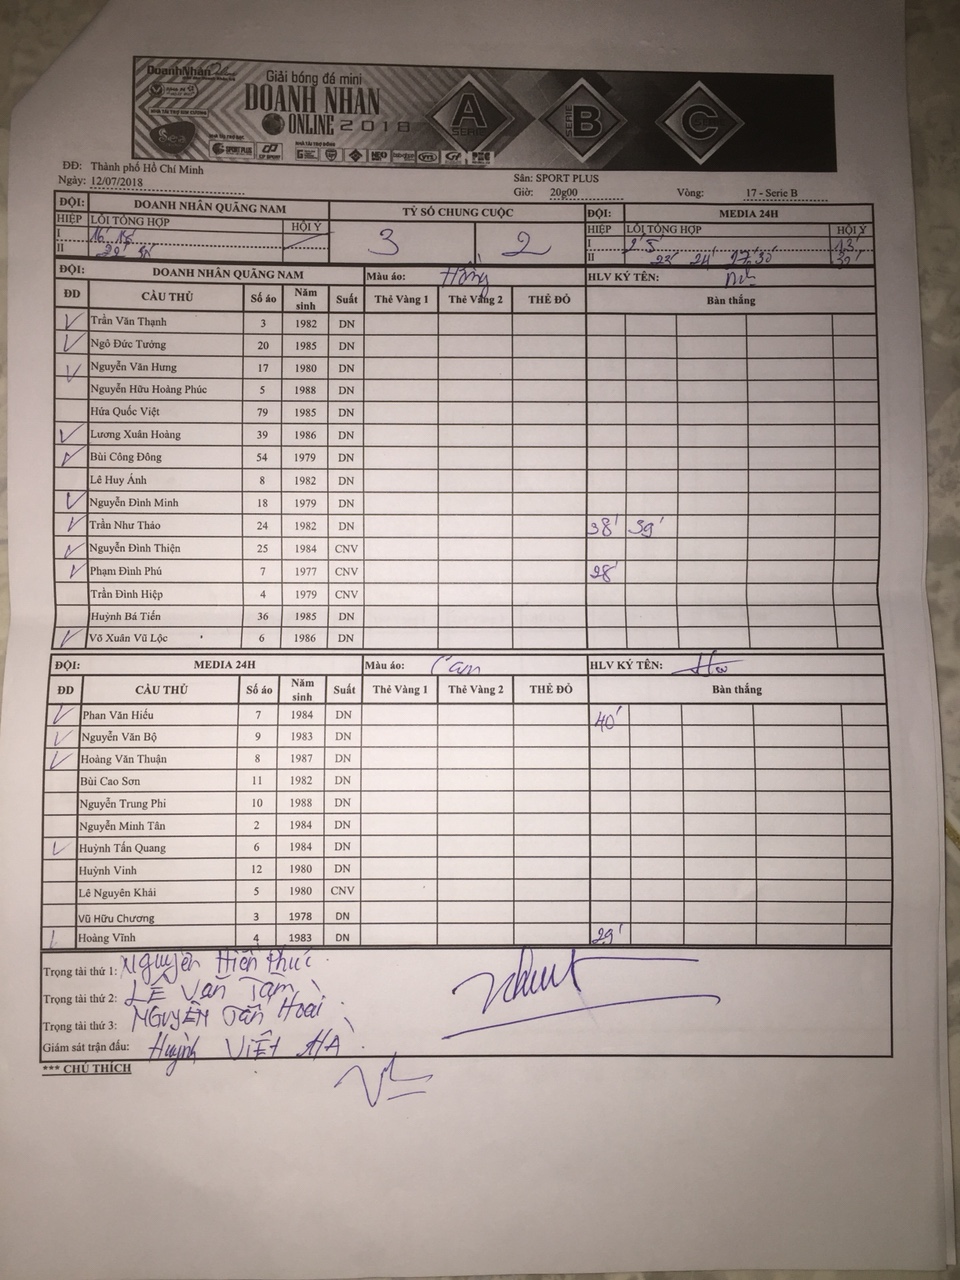 DoanhNhân
Giải bóng đá mini
DOANH NHÂN
ONLINE 2018
A SERIE
SERIE B
C
Sea
SPORT PLUS
ĐĐ: Thành phố Hồ Chí Minh
Sân: SPORT PLUS
Ngày: 12/07/2018
Giờ: 20g00
Vòng: 17 - Serie B
ĐỘI: DOANH NHÂN QUẢNG NAM TỶ SỐ CHUNG CUỘC ĐỘI: MEDIA 24H
HIỆP LỖI TỔNG HỢP HỘI Ý 3 2 HIỆP LỖI TỔNG HỢP HỘI Ý
I 16' 18' I 2' 5' 13'
II II 22' 24' 27' 30' 32'
ĐỘI: DOANH NHÂN QUẢNG NAM Màu áo: Hồng HLV KÝ TÊN:
ĐD CẦU THỦ Số áo Năm sinh Suất Thẻ Vàng 1 Thẻ Vàng 2 THẺ ĐỎ Bàn thắng
Trần Văn Thạnh 3 1982 DN
Ngô Đức Tưởng 20 1985 DN
Nguyễn Văn Hưng 17 1980 DN
Nguyễn Hữu Hoàng Phúc 5 1988 DN
Hứa Quốc Việt 79 1985 DN
Lương Xuân Hoàng 39 1986 DN
Bùi Công Đông 54 1979 DN
Lê Huy Ánh 8 1982 DN
Nguyễn Đình Minh 18 1979 DN
Trần Như Thảo 24 1982 DN 38' 39'
Nguyễn Đình Thiện 25 1984 CNV
Phạm Đình Phú 7 1977 CNV 28'
Trần Đình Hiệp 4 1979 CNV
Huỳnh Bá Tiến 36 1985 DN
Võ Xuân Vũ Lộc 6 1986 DN
ĐỘI: MEDIA 24H Màu áo: Cam HLV KÝ TÊN:
ĐD CẦU THỦ Số áo Năm sinh Suất Thẻ Vàng 1 Thẻ Vàng 2 THẺ ĐỎ Bàn thắng
Phan Văn Hiếu 7 1984 DN 40'
Nguyễn Văn Bộ 9 1983 DN
Hoàng Văn Thuận 8 1987 DN
Bùi Cao Sơn 11 1982 DN
Nguyễn Trung Phi 10 1988 DN
Nguyễn Minh Tân 2 1984 DN
Huỳnh Tấn Quang 6 1984 DN
Huỳnh Vinh 12 1980 DN
Lê Nguyên Khải 5 1980 CNV
Vũ Hữu Chương 3 1978 DN
Hoàng Vĩnh 4 1983 DN 29'
Trọng tài thứ 1: Nguyễn Hiền Phúc
Trọng tài thứ 2: LÊ Văn Tạm
Trọng tài thứ 3: NGUYỄN Tấn Hoài
Giám sát trận đấu: Huỳnh VIỆT HÀ
*** CHÚ THÍCH